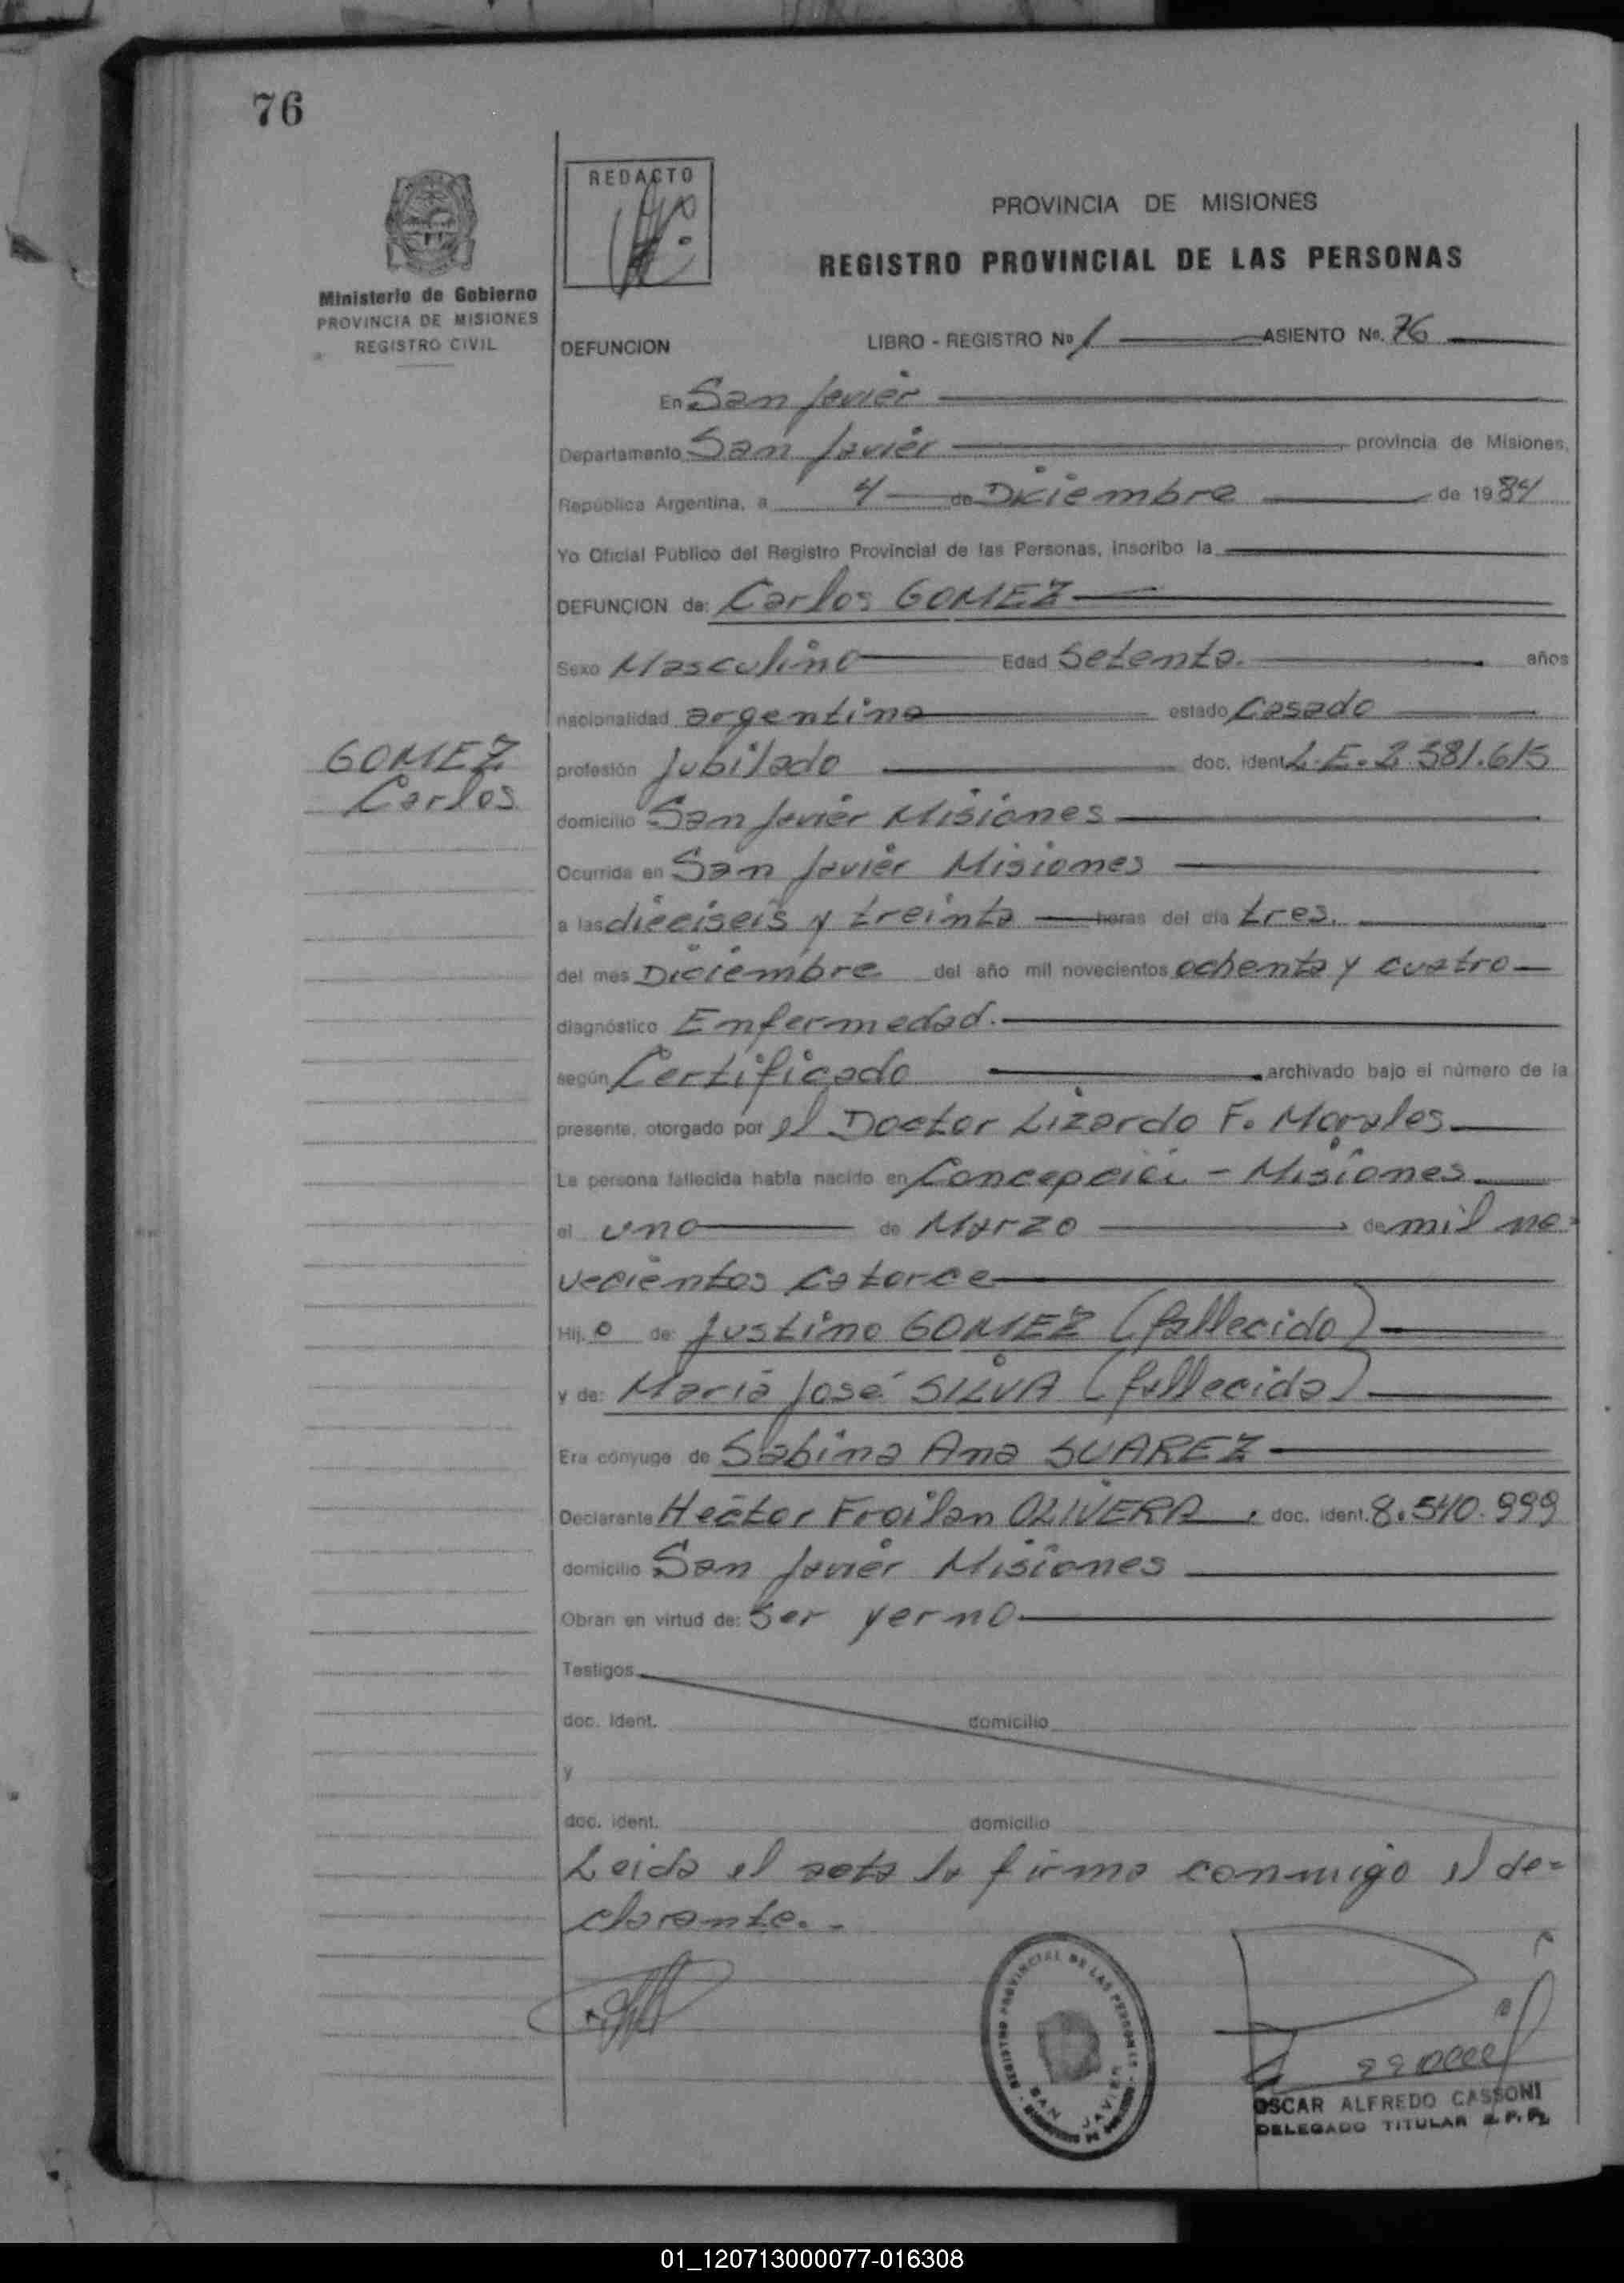 76
REDACTO
PROVINCIA DE MISIONES
REGISTRO PROVINCIAL DE LAS PERSONAS
Ministerio de Gobierno
PROVINCIA DE MISIONES
REGISTRO CIVIL
DEFUNCION LIBRO - REGISTRO Nº 1 ASIENTO Nº. 76
En San Javier
Departamento San Javier provincia de Misiones,
República Argentina, a 4 de Diciembre de 1984
Yo Oficial Público del Registro Provincial de las Personas, inscribo la
DEFUNCION de: Carlos GOMEZ
Sexo Masculino Edad Setenta. años
nacionalidad argentina estado Casado
GOMEZ
Carlos
profesión Jubilado doc. ident. L.E. 2.581.615
domicilio San Javier Misiones
Ocurrida en San Javier Misiones
a las dieciseis y treinta horas del día tres.
del mes Diciembre del año mil novecientos ochenta y cuatro
diagnóstico Enfermedad.
según Certificado archivado bajo el número de la
presente, otorgado por el Doctor Lizardo F. Morales
La persona fallecida había nacido en Concepción - Misiones
el uno de Marzo de mil no-
vecientos catorce
Hij o de: Justino GOMEZ (fallecido)
y de: María José SILVA (fallecida)
Era cónyuge de Sabina Ana SUAREZ
Declarante Hector Froilan OLIVERA, doc. ident. 8.540.999
domicilio San Javier Misiones
Obran en virtud de: Ser yerno
Testigos
doc. ident. domicilio
y
doc. ident. domicilio
Leida el acta la firma conmigo el de-
clarante. -
REGISTRO PROVINCIAL DE LAS PERSONAS
SAN JAVIER
OSCAR ALFREDO CASSONI
DELEGADO TITULAR R. P. P.
01_120713000077-016308